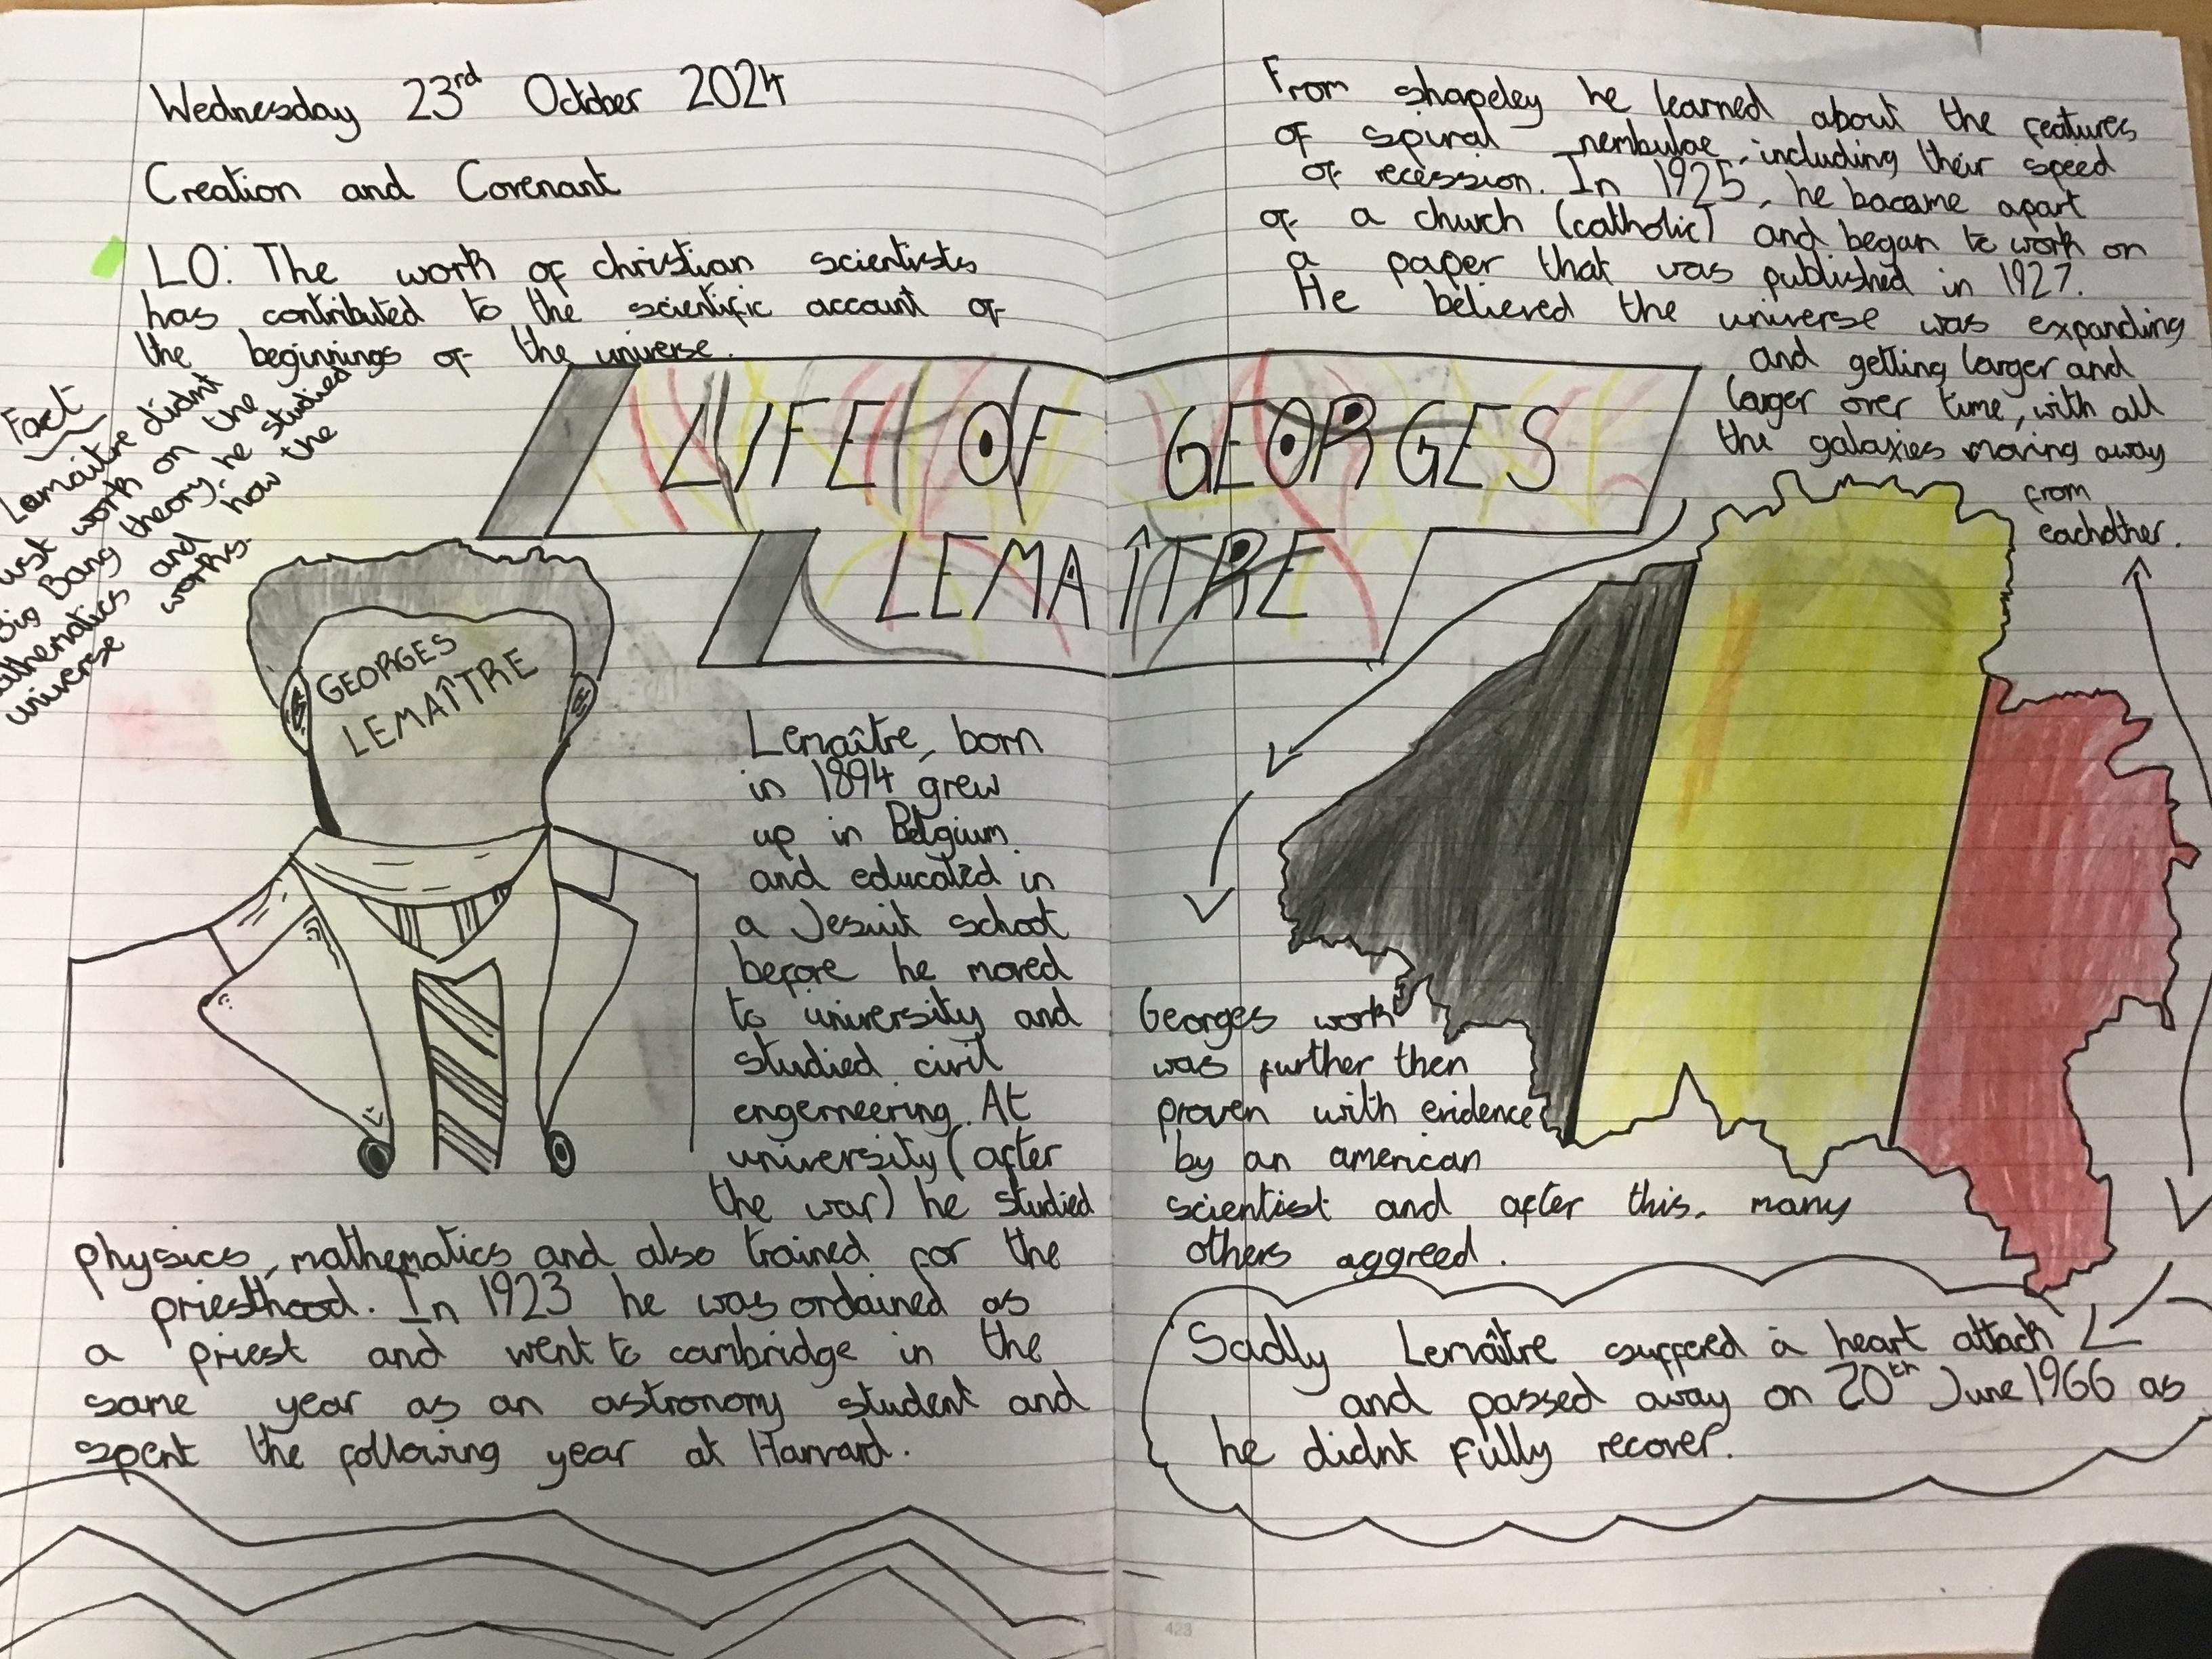 Wednesday 23rd October 2024
Creation and Covenant
LO: The work of christian scientists
has contributed to the scientific account of
the beginnings of the universe.
Fact
Lamaitre didnt
just work on the
Big Bang theory, he studied
mathematics and how the
universe works.
LIFE OF GEORGES
LEMAÎTRE
GEORGES
LEMAÎTRE
Lemaître, born
in 1894 grew
up in Belgium
and educated in
a Jesuit school
before he moved
to university and
studied civil
engerneering. At
university (after
the war) he studied
physics, mathematics and also trained for the
priesthood. In 1923 he was ordained as
a priest and went to cambridge in the
same year as an astronomy student and
spent the following year at Harvard.
From shapeley he learned about the features
of spiral nembulae, including their speed
of recession. In 1925, he bacame apart
of a church (catholic) and began to work on
a paper that was published in 1927.
He believed the universe was expanding
and getting larger and
larger over time, with all
the galaxies moving away
from
eachother.
Georges work
was further then
proven with evidence
by an american
scientist and after this, many
others aggreed.
Sadly Lemaître suffered a heart attack
and passed away on 20th June 1966 as
he didnt fully recover.
423